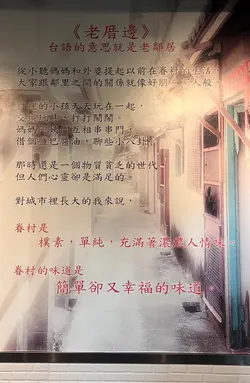 《老厝邊》
台語的意思就是老鄰居
從小聽媽媽和外婆提起以前在眷村的生活
大家跟鄰里之間的關係就像好朋友家人般
的小孩天天玩在一起，
打打鬧鬧。
媽媽們互相串串門，
借個鹽巴醬油，聊些小八卦
那時還是一個物質貧乏的世代
但人們心靈卻是滿足的。
對城市裡長大的我來說，
眷村是
樸素，單純，充滿著濃濃人情味。
眷村的味道是
簡單卻又幸福的味道。